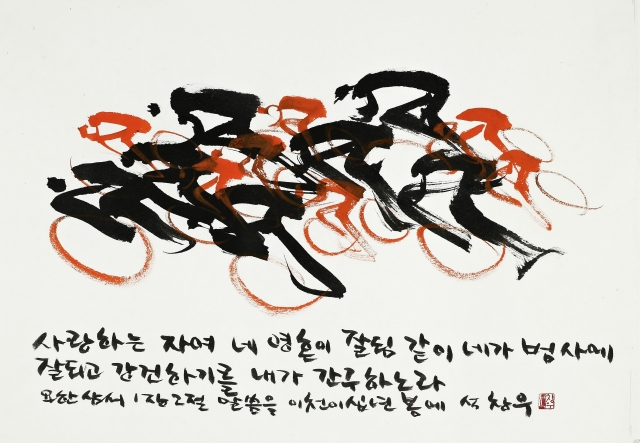 사랑하는 자여 네 영혼이 잘됨 같이 네가 범사에
잘되고 강건하기를 내가 간구하노라
요한삼서 1장2절 말씀을 이천이십년 봄에 석창우